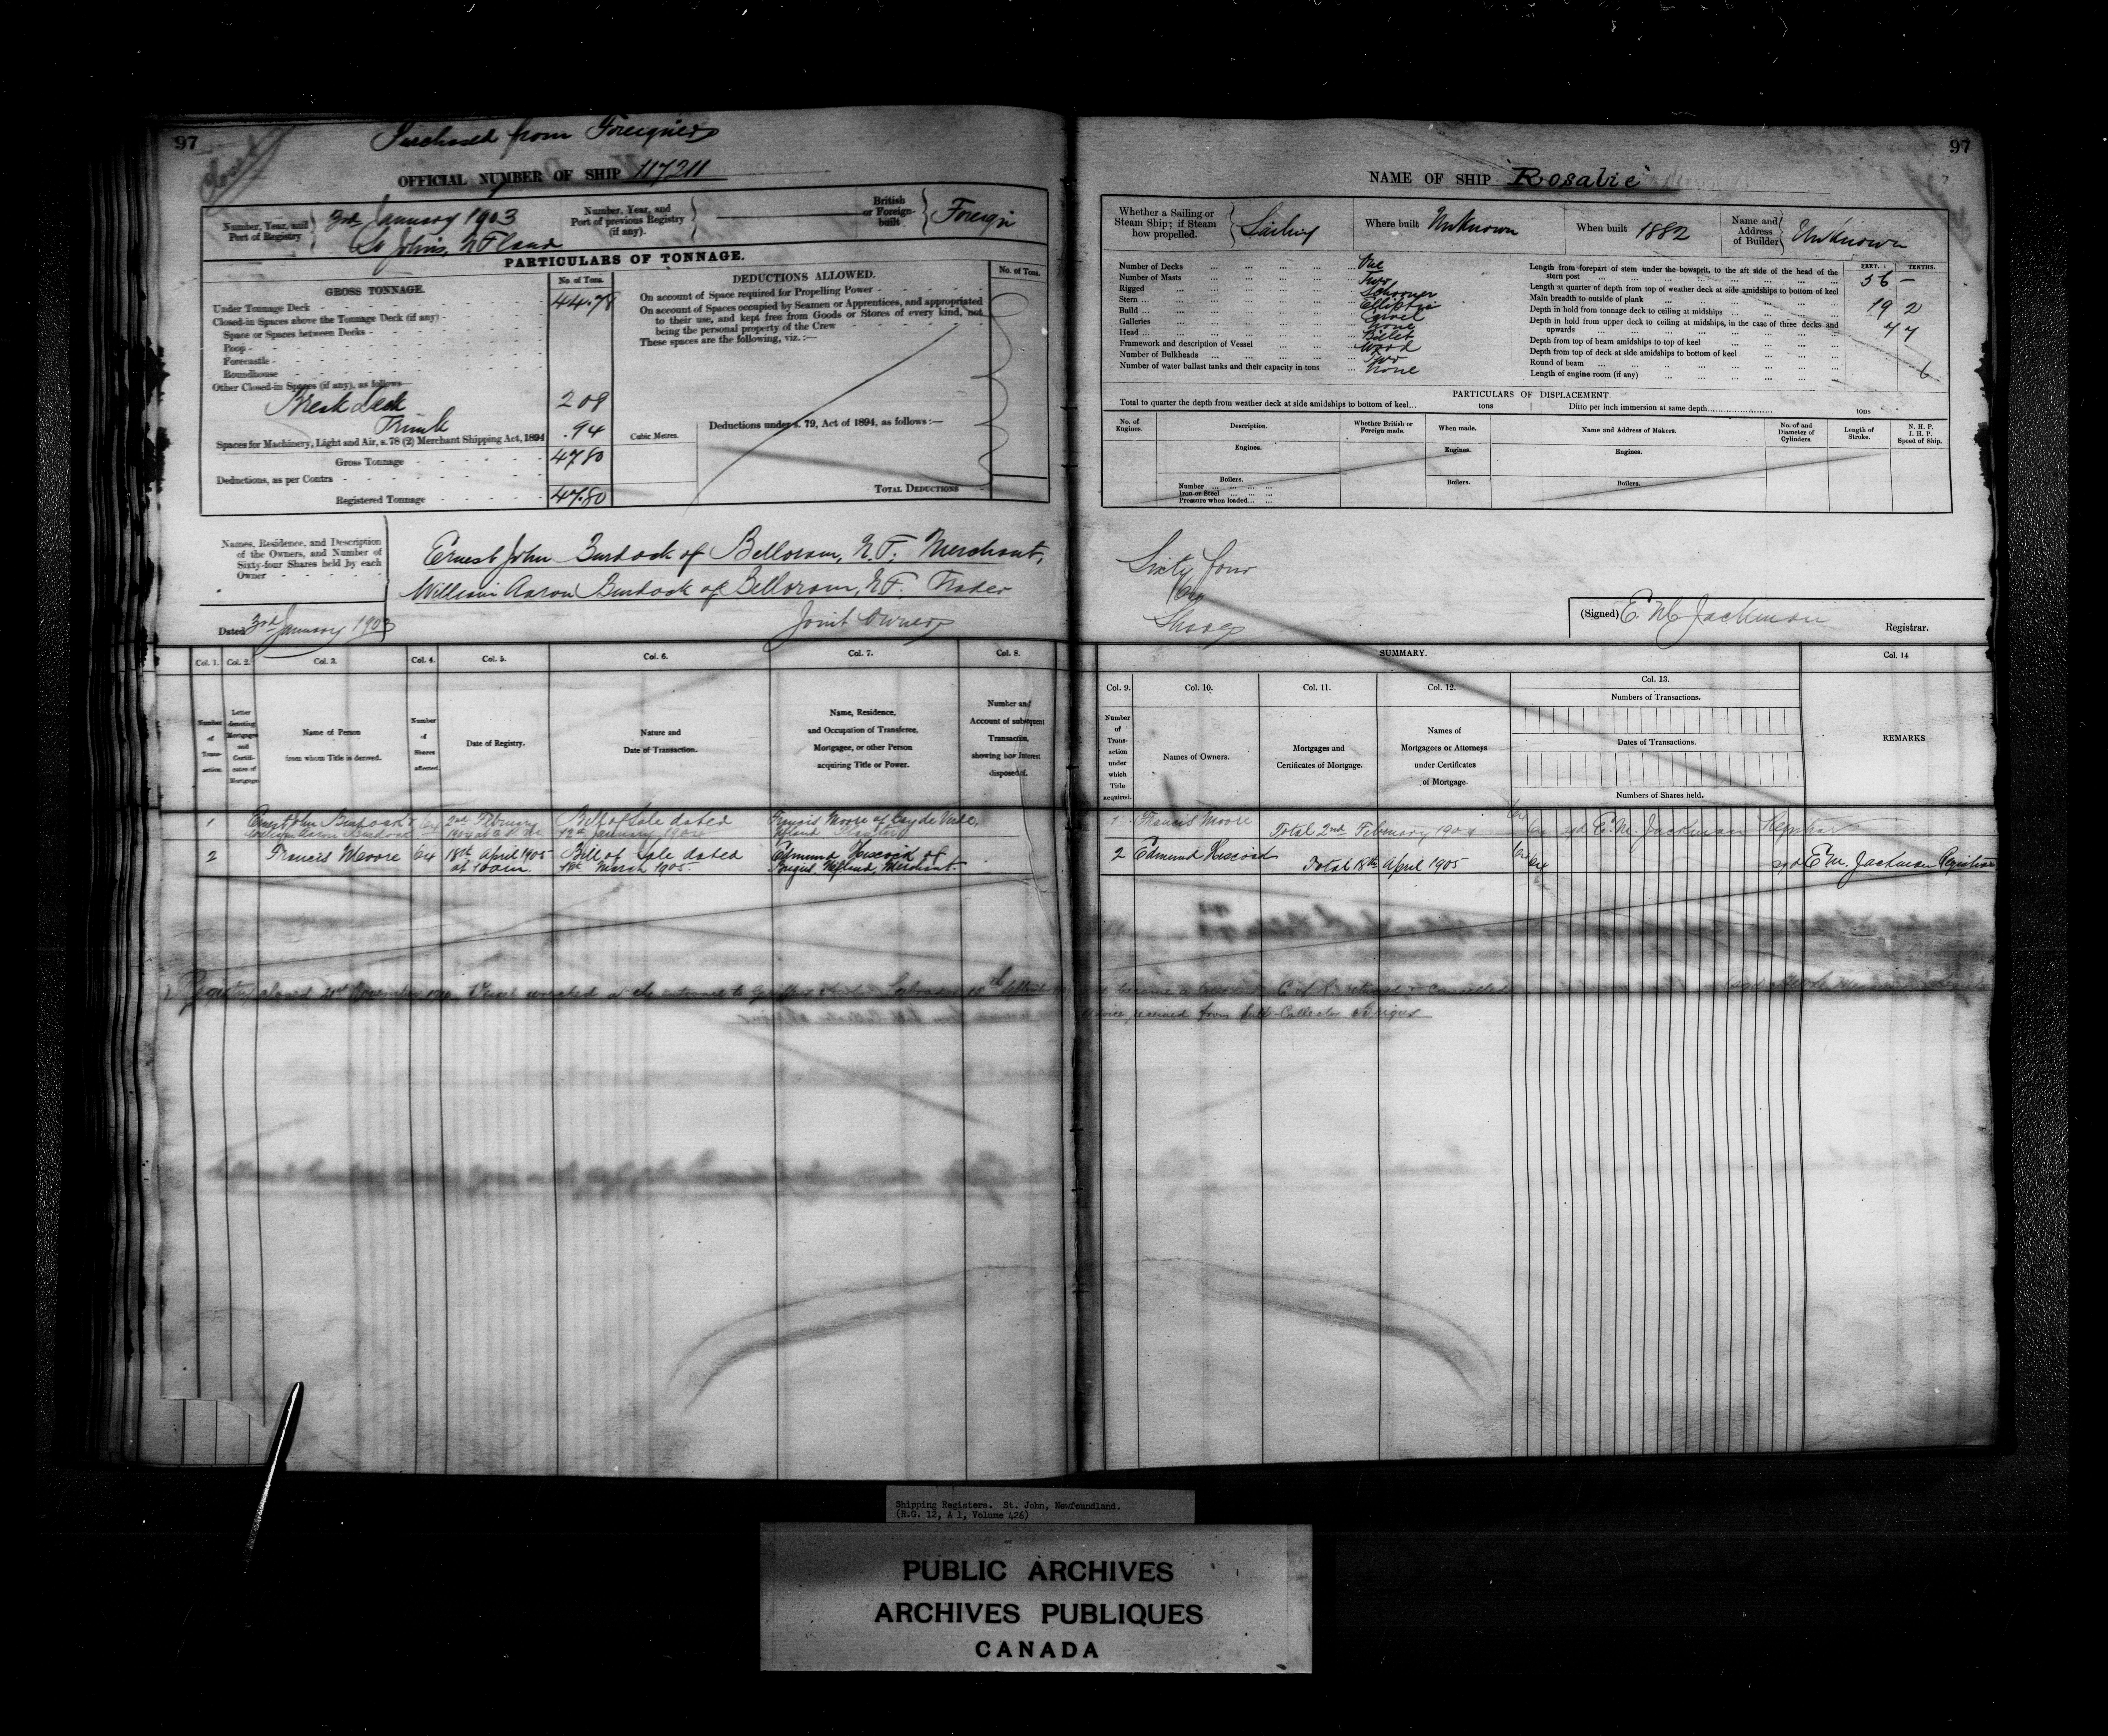 97
Closed
Purchased from Foreigners
OFFICIAL NUMBER OF SHIP 117211
Number, Year, and Port of Registry
3rd January 1903
St Johns, NFland
Number, Year, and Port of previous Registry (if any).
British or Foreign-built
Foreign
PARTICULARS OF TONNAGE.
GROSS TONNAGE.
No. of Tons.
Under Tonnage Deck 44.78
Closed-in Spaces above the Tonnage Deck (if any)
Space or Spaces between Decks
Poop
Forecastle
Roundhouse
Other Closed-in Spaces (if any), as follows
Break deck 2 08
Trunk .94
Spaces for Machinery, Light and Air, s. 78 (2) Merchant Shipping Act, 1894
Gross Tonnage 47.80
Deductions, as per Contra
Registered Tonnage 47.80
Cubic Metres.
DEDUCTIONS ALLOWED.
No. of Tons.
On account of Space required for Propelling Power
On account of Spaces occupied by Seamen or Apprentices, and appropriated
to their use, and kept free from Goods or Stores of every kind, not
being the personal property of the Crew
These spaces are the following, viz. :—
Deductions under s. 79, Act of 1894, as follows :—
TOTAL DEDUCTIONS
Names, Residence, and Description
of the Owners, and Number of
Sixty-four Shares held by each
Owner
Ernest John Burdock of Belloram, N.F. Merchant,
William Aaron Burdock of Belloram, N.F. Trader
Joint Owners
Dated 3rd January 1903
97
NAME OF SHIP "Rosalie"
Whether a Sailing or Steam Ship; if Steam how propelled.
Sailing
Where built Unknown
When built 1882
Name and Address of Builder
Unknown
Number of Decks One
Number of Masts Two
Rigged Schooner
Stern Elliptic
Build Carvel
Galleries None
Head Billet
Framework and description of Vessel Wood
Number of Bulkheads Two
Number of water ballast tanks and their capacity in tons None
FEET. TENTHS.
Length from forepart of stem under the bowsprit, to the aft side of the head of the
stern post 56 –
Length at quarter of depth from top of weather deck at side amidships to bottom of keel
Main breadth to outside of plank 19 2
Depth in hold from tonnage deck to ceiling at midships 7 7
Depth in hold from upper deck to ceiling at midships, in the case of three decks and
upwards
Depth from top of beam amidships to top of keel
Depth from top of deck at side amidships to bottom of keel
Round of beam 6
Length of engine room (if any)
PARTICULARS OF DISPLACEMENT.
Total to quarter the depth from weather deck at side amidships to bottom of keel... tons
Ditto per inch immersion at same depth tons
No. of Engines.
Description.
Whether British or Foreign made.
When made.
Name and Address of Makers.
No. of and Diameter of Cylinders.
Length of Stroke.
N. H. P.
I. H. P.
Speed of Ship.
Engines.
Engines.
Engines.
Boilers.
Number
Iron or Steel
Pressure when loaded
Boilers.
Boilers.
Sixty four
64
Shares
(Signed) E. M. Jackman
Registrar.
Col. 1. Col. 2. Col. 3. Col. 4. Col. 5. Col. 6. Col. 7. Col. 8.
Number of Transaction.
Letter denoting Mortgages and Certificates of Mortgage.
Name of Person from whom Title is derived.
Number of Shares affected.
Date of Registry.
Nature and Date of Transaction.
Name, Residence, and Occupation of Transferee, Mortgagee, or other Person acquiring Title or Power.
Number and Account of subsequent Transaction, showing how Interest disposed of.
1 Ernest John Burdock & 64 2nd February Bill of Sale dated Francis Moore of Bay de Verde,
William Aaron Burdock 1904 12th January 1904 Nfland
2 Francis Moore 64 18th April 1905 Bill of Sale dated Edmund Hiscock of
at 10 am. March 1905. Brigus, Nfland, Merchant.
SUMMARY.
Col. 9. Col. 10. Col. 11. Col. 12. Col. 13. Col. 14
Number of Transaction under which Title acquired.
Names of Owners.
Mortgages and Certificates of Mortgage.
Names of Mortgagees or Attorneys under Certificates of Mortgage.
Numbers of Transactions.
Dates of Transactions.
Numbers of Shares held.
REMARKS.
1 Francis Moore
Total 2nd February 1904 64 64 sgd E. M. Jackman Registrar
2 Edmund Hiscock
Total 18th April 1905 64 64 sgd E. M. Jackman Registrar
Registry closed 21st November 1910 Vessel wrecked at the entrance to Labrador 15th and became a C of R cancelled
Advice received from Sub-Collector Brigus
Shipping Registers. St. John, Newfoundland.
(R.G. 12, A 1, Volume 426)
PUBLIC ARCHIVES
ARCHIVES PUBLIQUES
CANADA